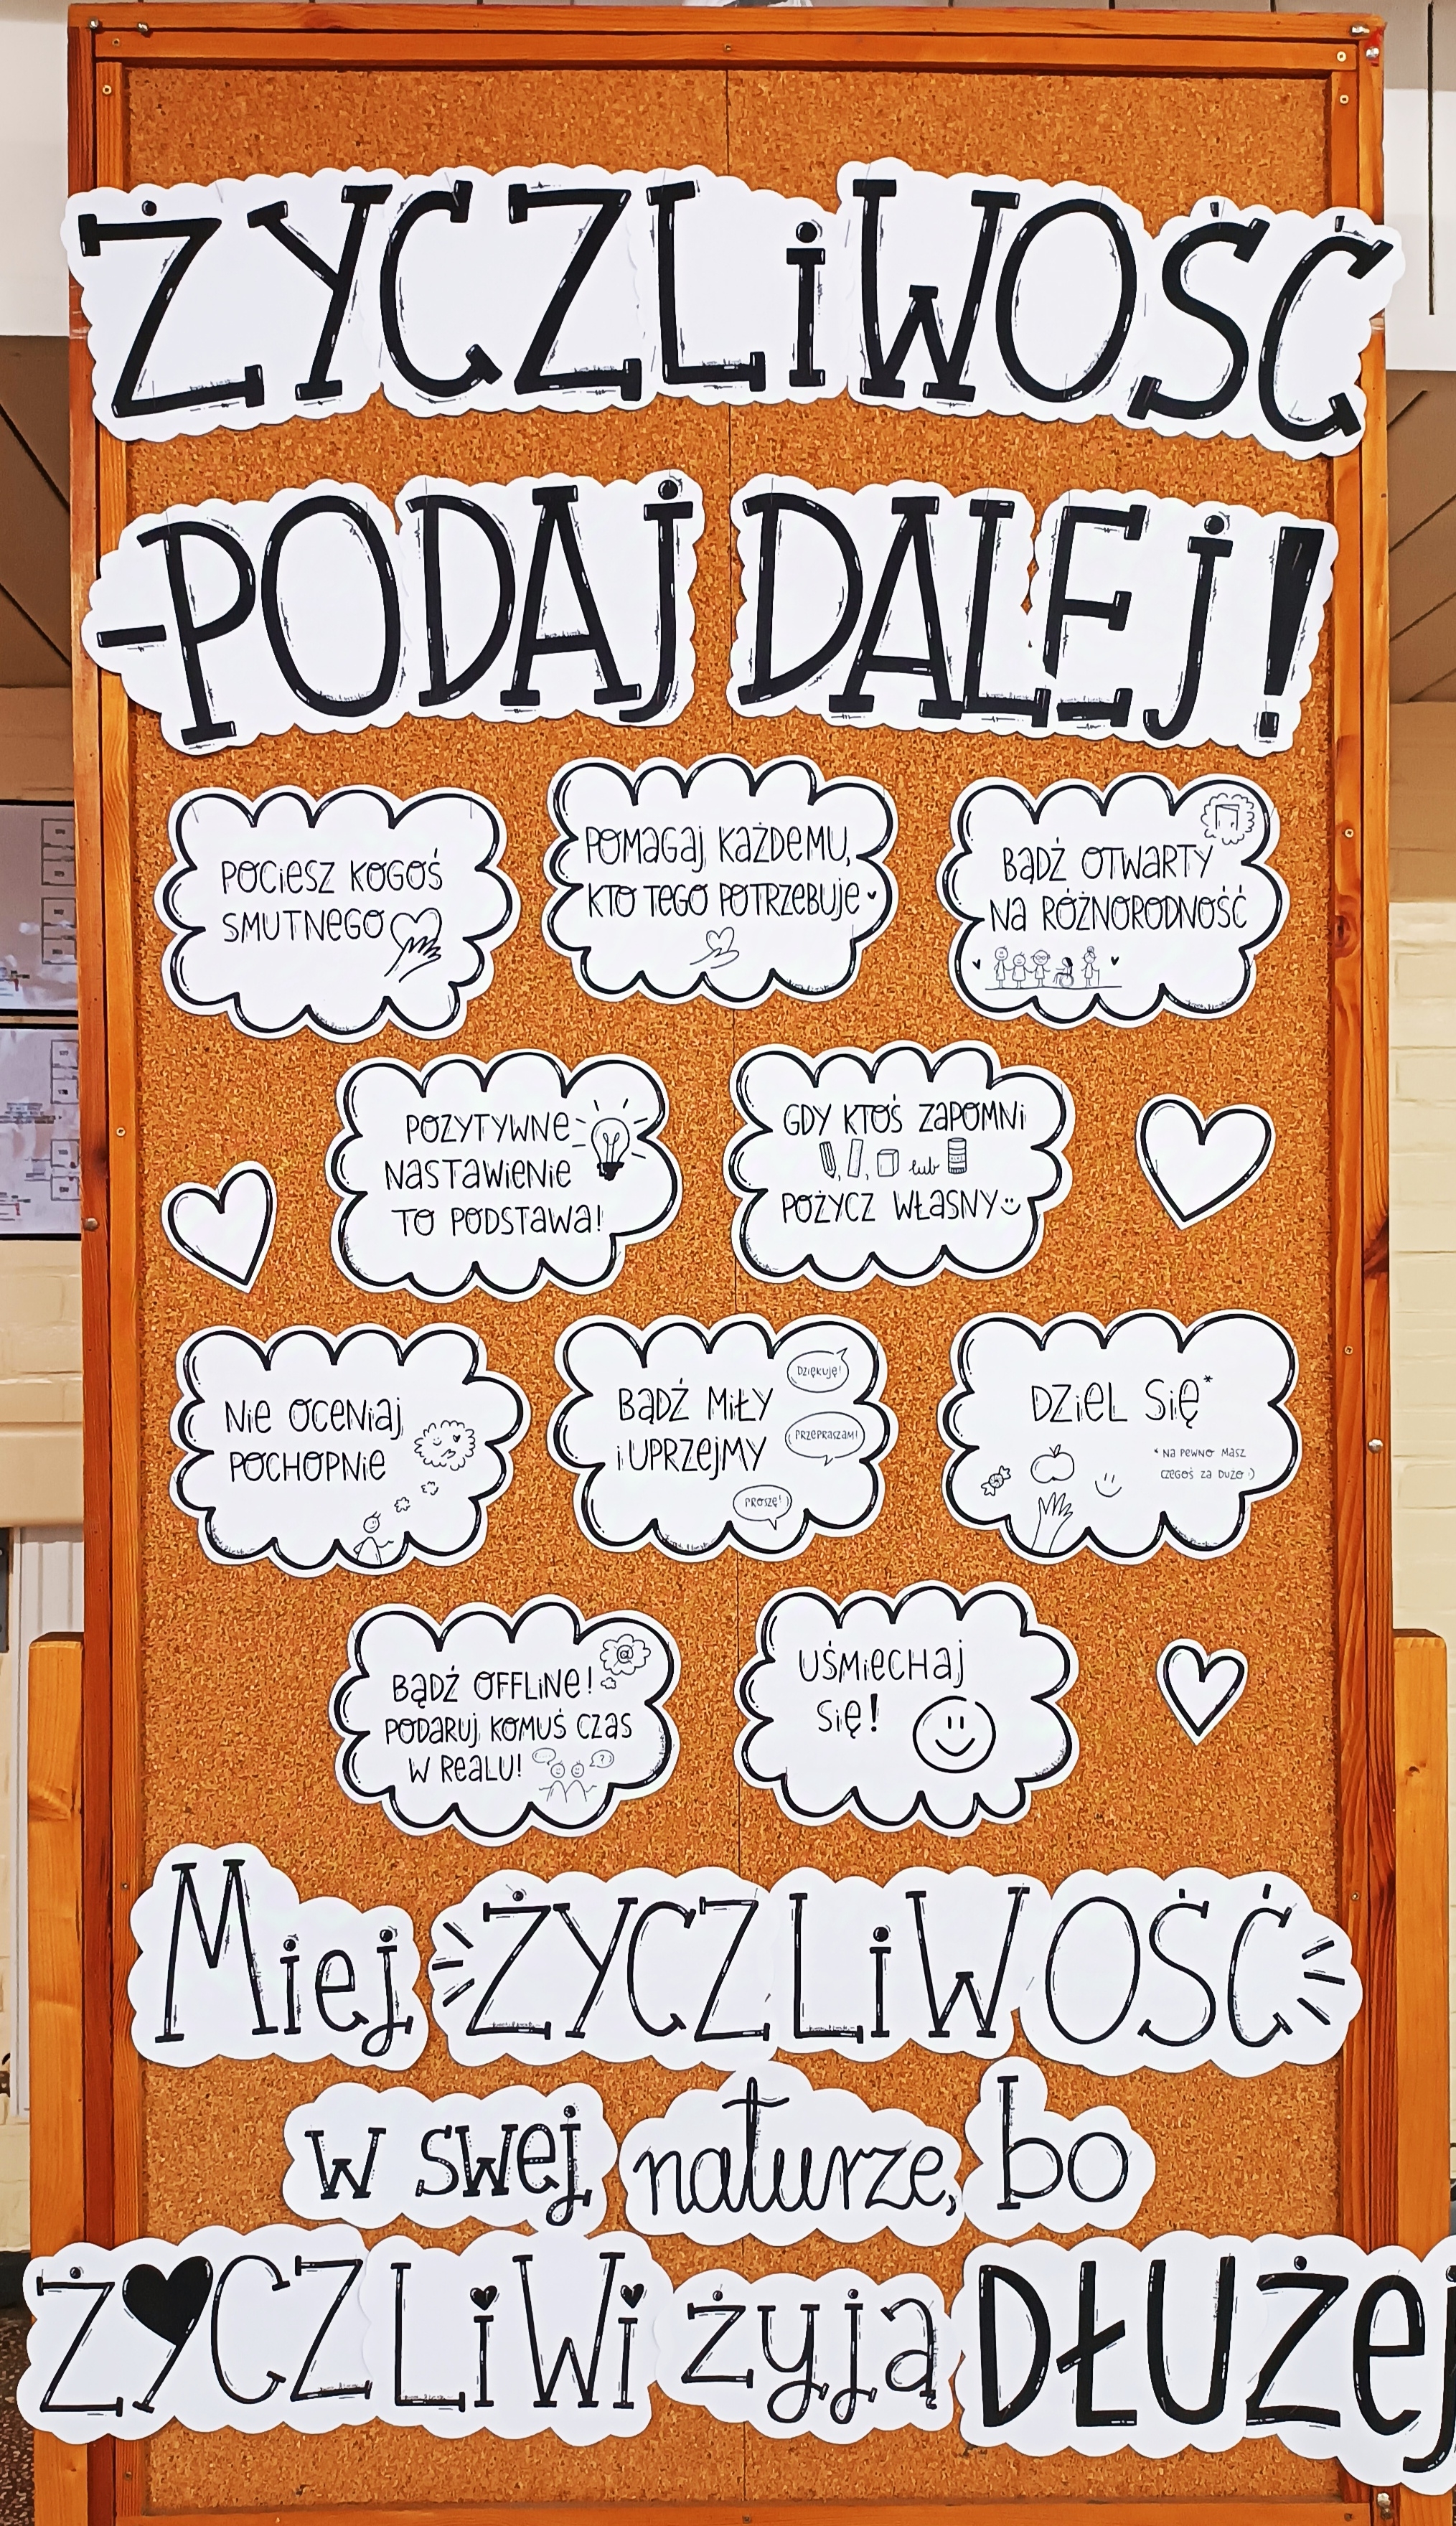 ŻYCZLiWOŚĆ
-PODAj DALEj!
POCiESZ KOGOŚ
SMUTNEGO
POMAGAj KAŻDEMU,
KTO TEGO POTRZEBUjE
BĄDŹ OTWARTY
NA RÓŻNORODNOŚĆ
POZYTYWNE
NASTAWiENiE
TO PODSTAWA!
GDY KTOŚ ZAPOMNi
, , lub
POŻYCZ WŁASNY
NiE OCENiAj
POCHOPNiE
BĄDŹ MiŁY
i UPRZEjMY
DZiĘKUjĘ!
PRZEPRASZAM!
PROSZĘ!
DZiEL SiĘ*
* NA PEWNO MASZ
CZEGOŚ ZA DUŻO :)
BĄDŹ OFFLiNE!
@
PODARUj KOMUŚ CZAS
W REALU!
?
UŚMiECHAj
SiĘ!
Miej ŻYCZLiWOŚĆ
w swej naturze, bo
ŻYCZLiWi żyją DŁUŻEj